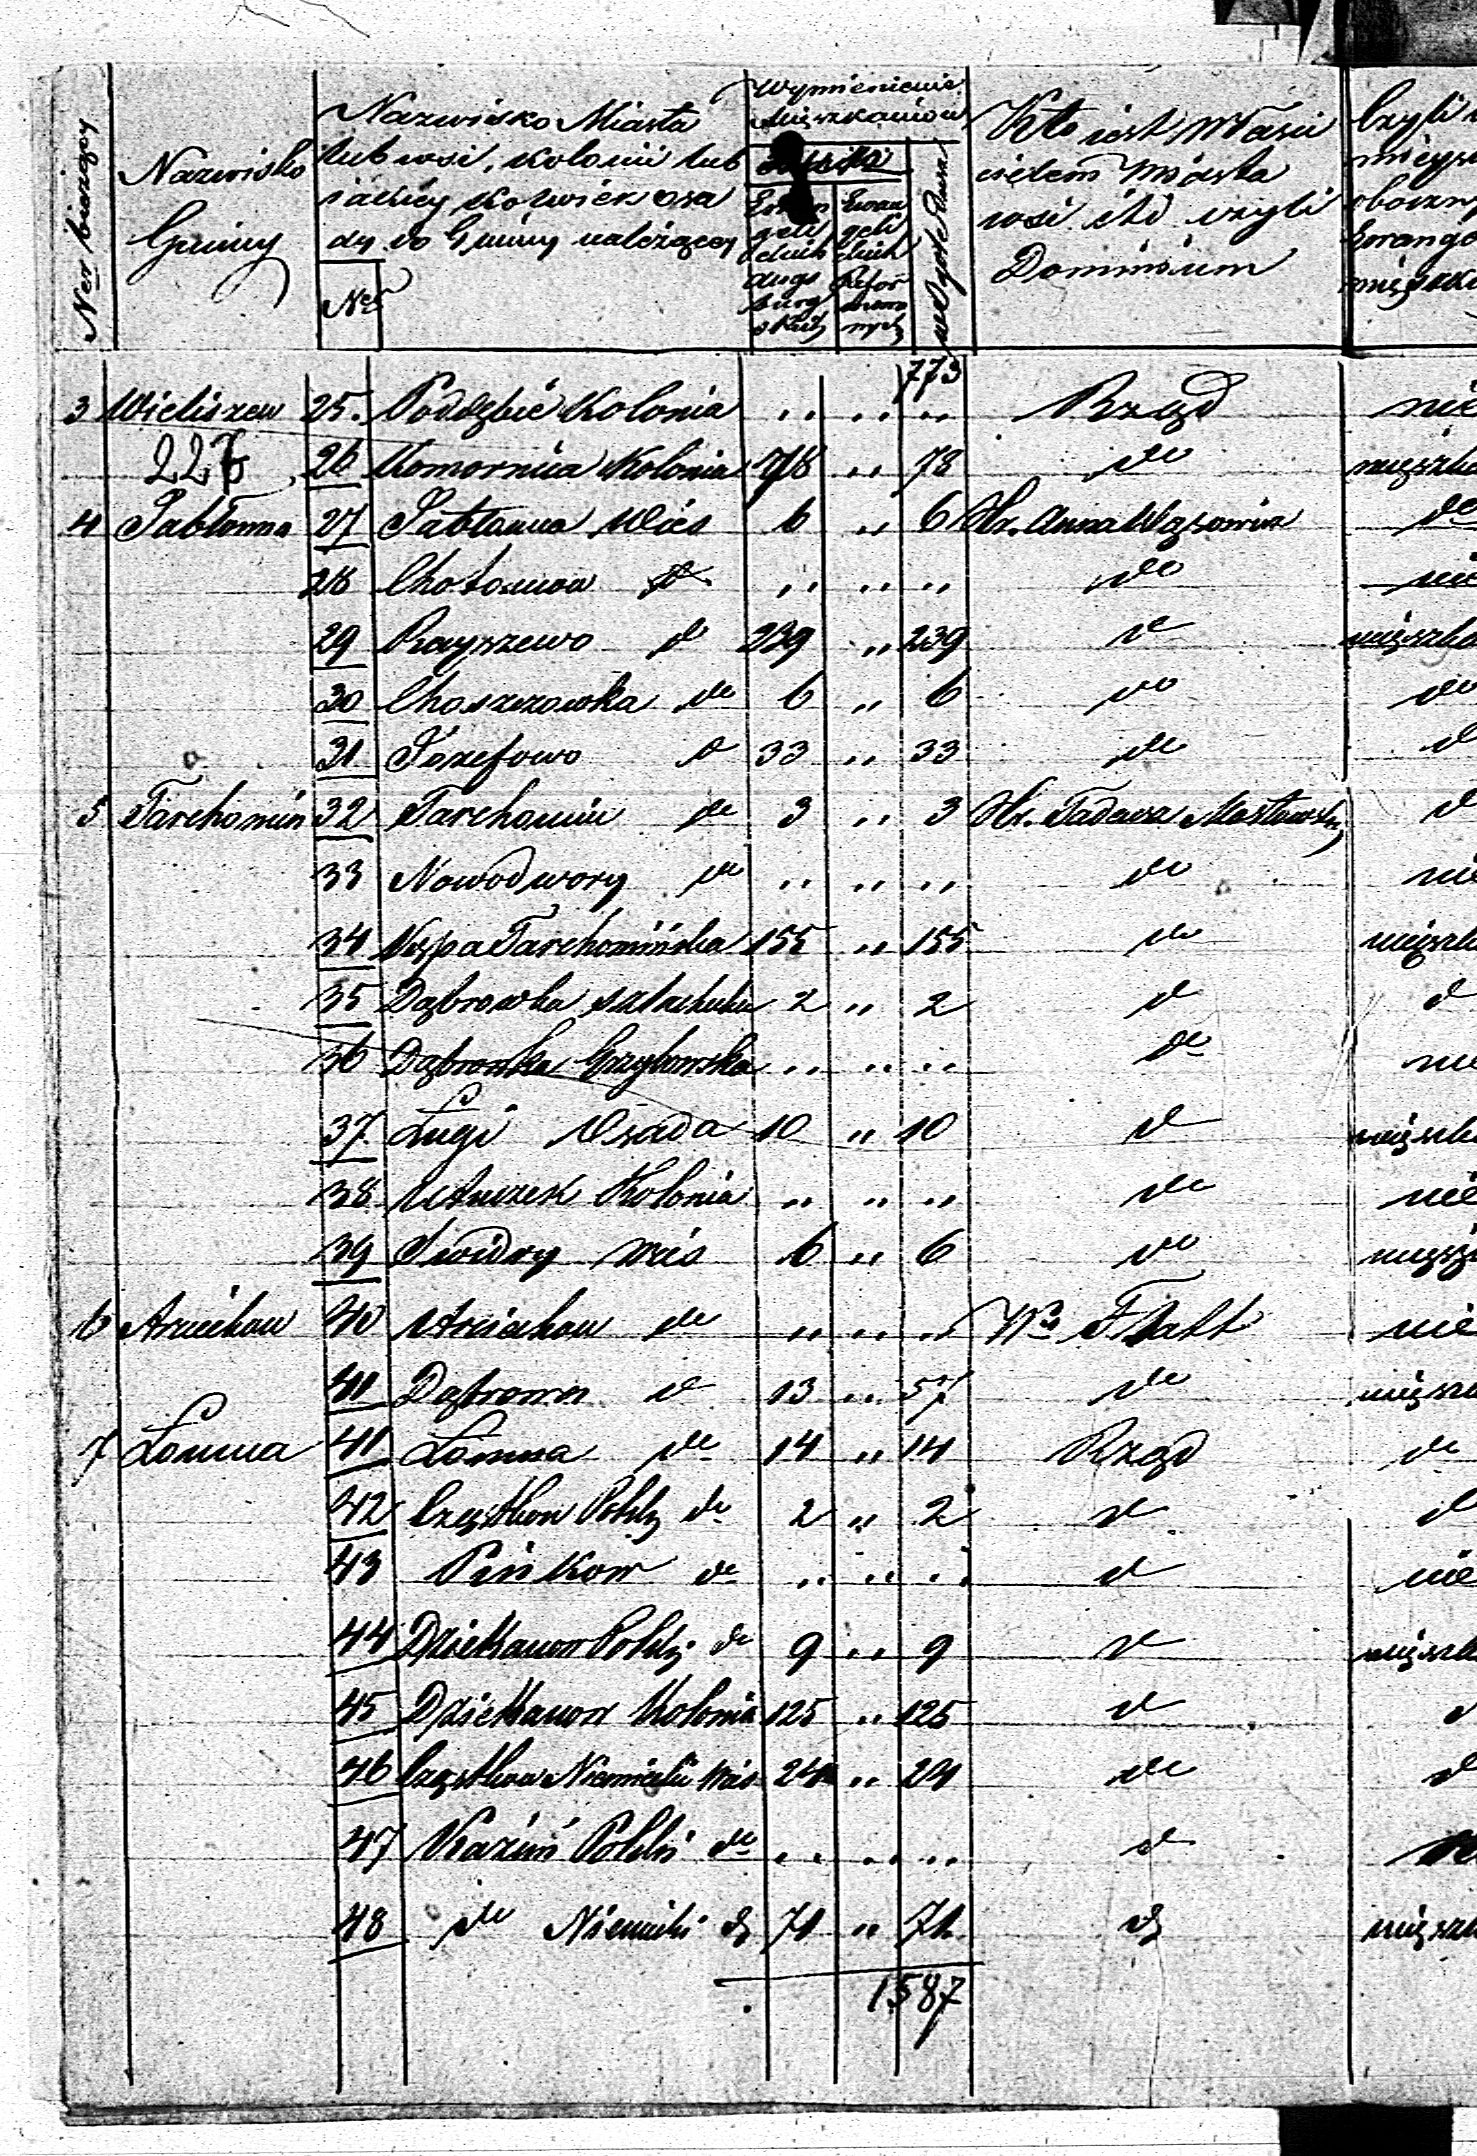 Ner bieżący
Nazwisko
Gminy
Nazwisko Miasta
lub wsi, kolonii lub
iakiey kolwiek osa
dy do Gminy należącey
Ner
Wymienienie
Mieszkańców
Ewan
geli
ckich
Augs
burg
skich
Ewan
geli
ckich
Refor
mowa
nych
Kto iest Właści
cielem Miasta
wsi itd czyli
Dominium
Czyli
mieysc
oboczny
Ewange
mieszka
773
3 Wieliszew 25. Poddębie Kolonia " " " Rząd nie
227 26 Komornica Kolonia 78 " 78 do mieszka
4 Jabłonna 27 Jabłonna Wieś 6 " 6 Hr. Anna Wąsowicz do
28 Chotomow do " " " do nie
29 Rayszewo do 239 " 239 do mieszka
30 Choszczowka do 6 " 6 do do
31 Józefowo do 33 " 33 do do
5 Tarchomin 32 Tarchomin do 3 " 3 Hr. Tadeusz Mostowski do
33 Nowodwory do " " " do nie
34 Kępa Tarchomińska 155 " 155 do mieszk
35 Dąbrowka szlachecka 2 " 2 do do
36 Dąbrowka Grzybowska " " " do nie
37 Ługi Osada 10 " 10 do mieszk
38 Kolonia " " " do nie
39 Swidry wieś 6 " 6 do miesz
6 40 do " " " nie
41 Dąbrowa do 13 " 57 do miesz
7 Łomna 41 Łomna do 14 " 14 Rząd do
42 Cząstkow Polski do 2 " 2 do do
43 Pieńkow do " " " do nie
44 Dziekanow Polski do 9 " 9 do mieszk
45 Dziekanow Kolonia 125 " 125 do
46 Cząstkow Niemiecki wieś 24 " 24 do do
47 Kazuń Polski do " " " do
48 do Niemiecki do 71 " 71 do miesz
1587